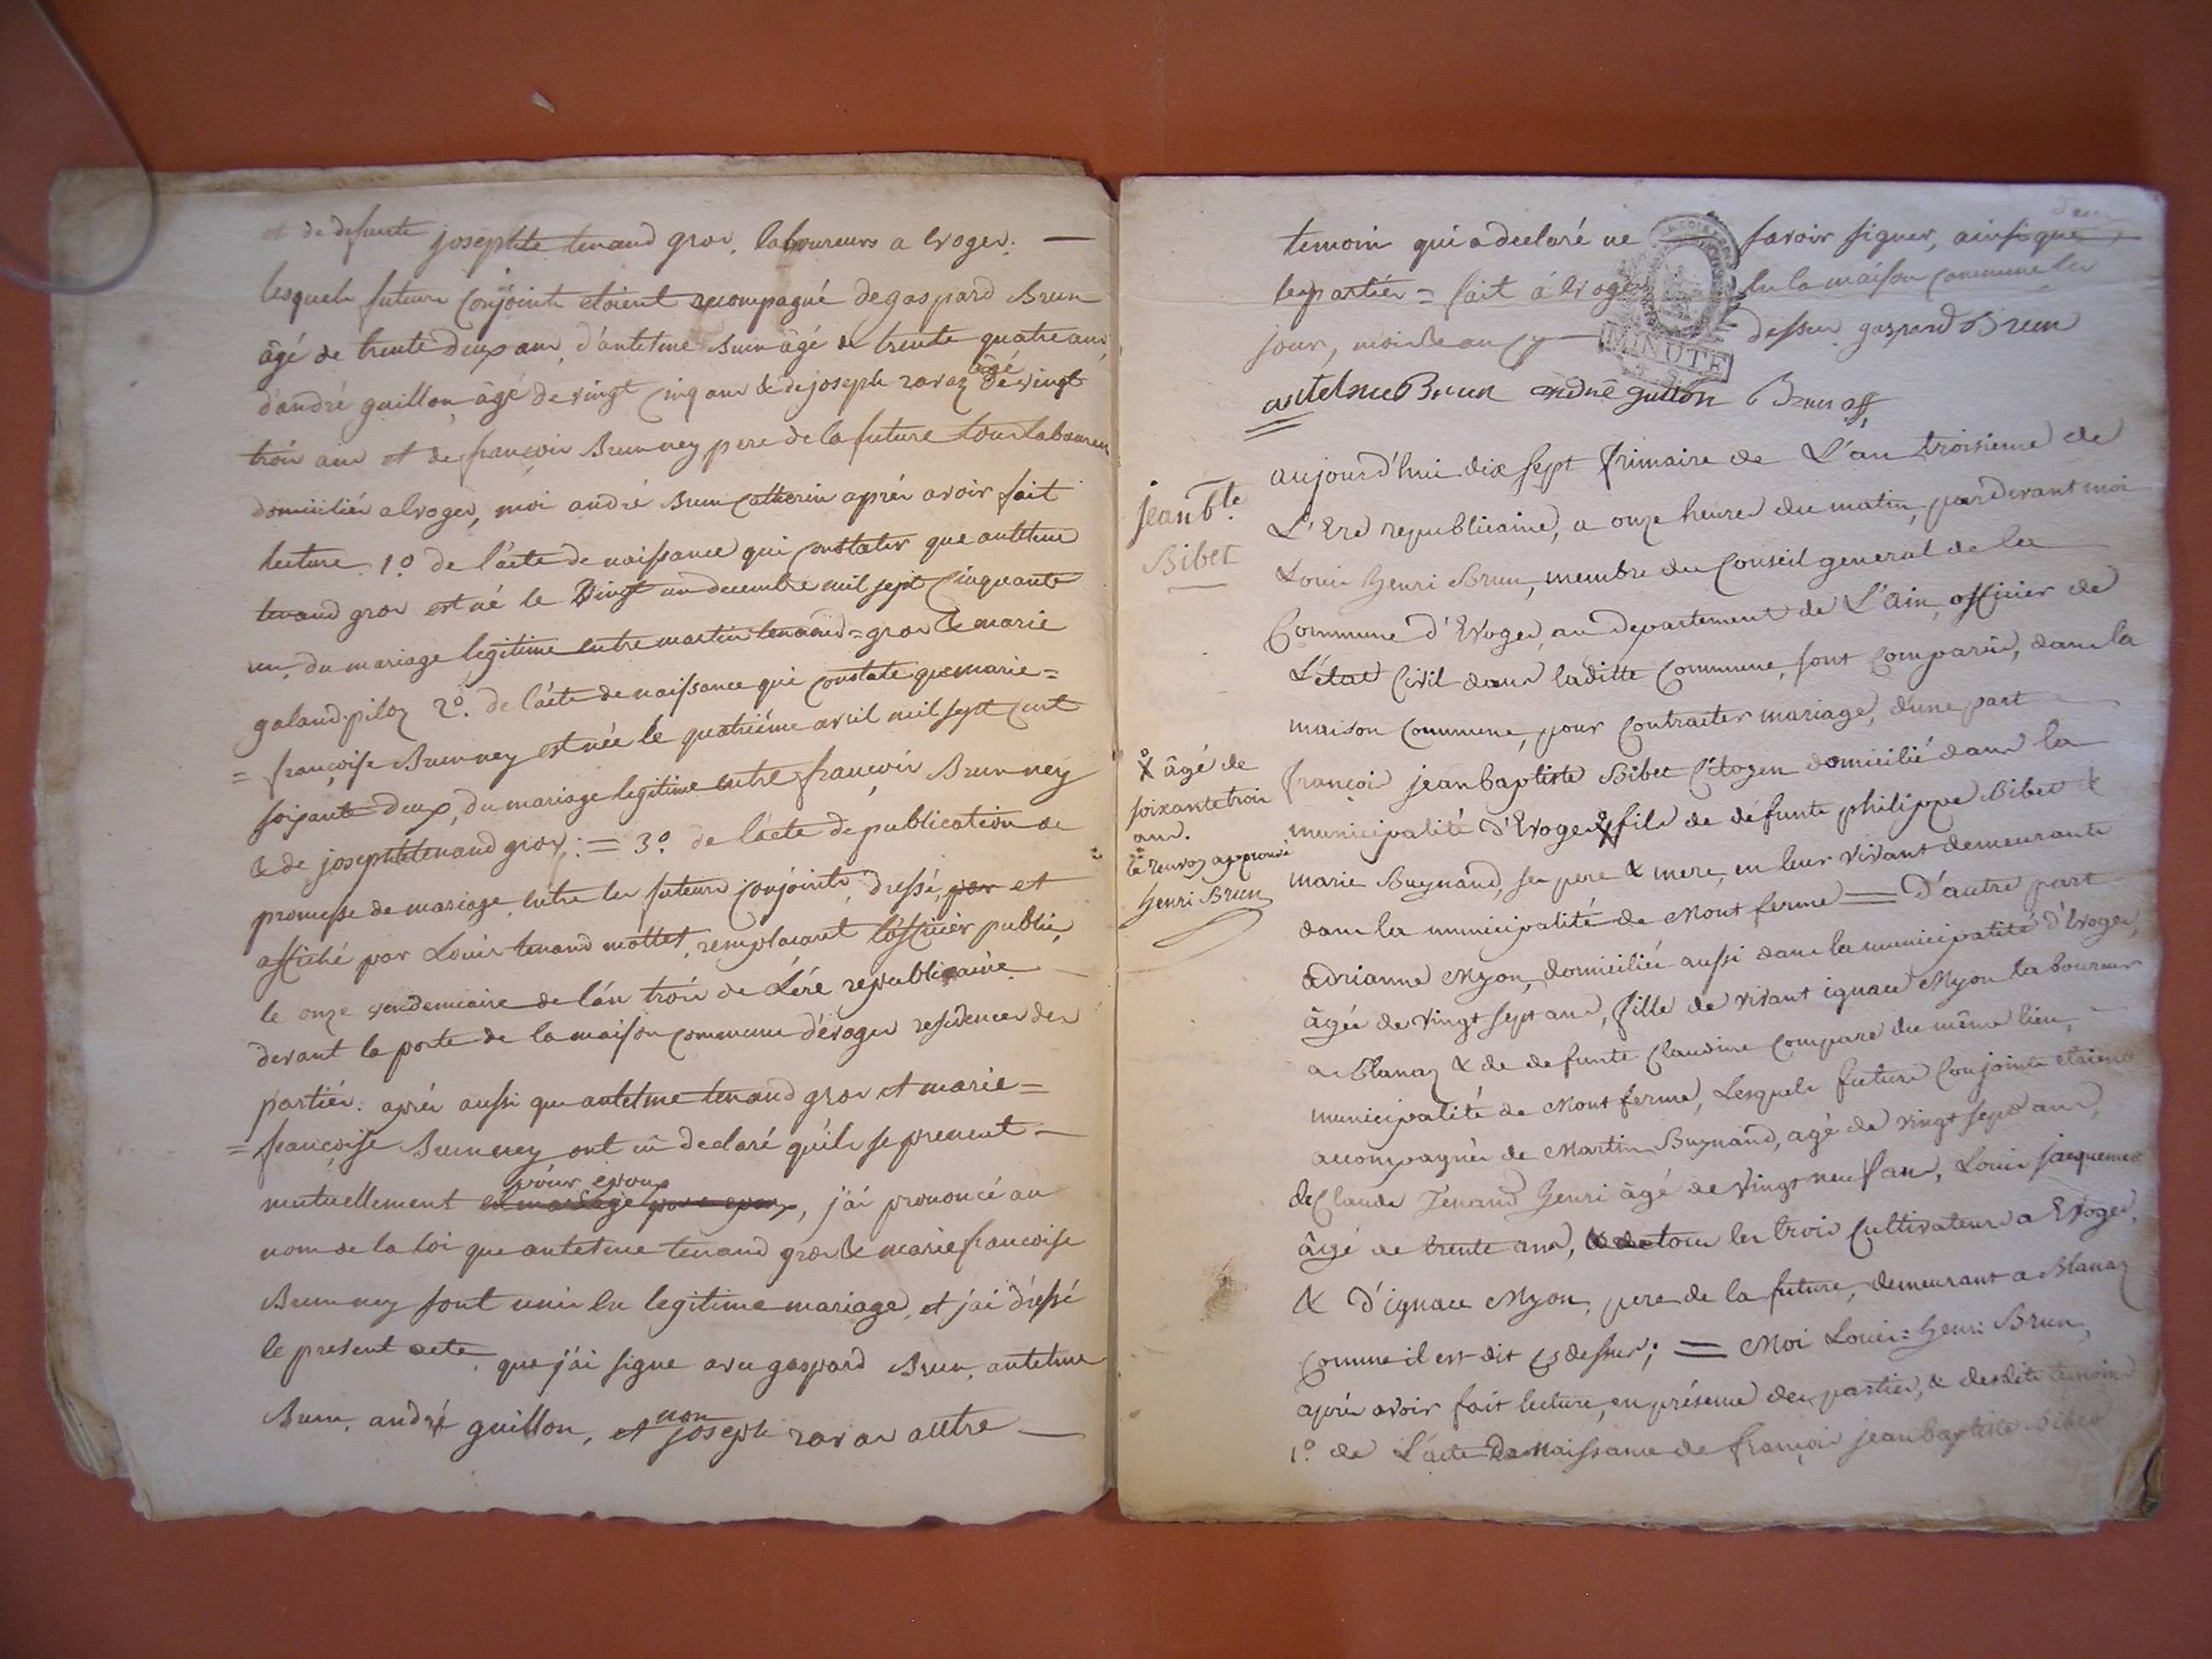 et de defunte josephte tenand gros. laboureurs a Evoges. —
lesquels futurs conjoints etoient accompagné de gaspard Brun
âgé de trente deux ans, d'antelme Brun âgé de trente quatre ans,
d'andré guillon âgé de vingt cinq ans & de joseph ravaz âgé de vingt
trois ans et de françois Brunney pere de la future tous laboureurs
domiciliés a Evoges, moi andré Brun Catherin aprés avoir fait
lecture 1º de l'acte de naissance qui constater que antelme
tenand gros est né le Vingt un decembre mil sept Cinquante
un, du mariage legitime entre martin tenand=gros & marie
galand piloz 2º. de l'acte de naissance qui constate que marie=
= françoise Brunney est née le quatriéme avril mil sept cent
soixante-deux, du mariage legitime entre françois Brunney
& de josephte tenand gros; = 3º de l'acte de publication de
promesse de mariage entre les futurs conjoints, dressé, par et
affiché par Louis tenand mottet, remplacant l'officier public,
le onze vendemiaire de l'an trois de L'ére republicaine. —
devant la porte de la maison commune d'évoges residences des
partiés: aprés aussi que antelme tenand gros et marie=
= françoise Brunney ont eu declaré qu'ils se prenent —
pour epoux
mutuellement en mariage pour epoux, j'ai prononcé au
nom de la loi que antelme tenand gros & marie francoise
Brunney sont unis en legitime mariage, et j'ai dréssé
le present acte, que j'ai signe avec gaspard Brun, antelme
Brun, andré guillon, et non joseph ravaz autre —
temoin qui a declaré ne savoir signer, ainsi que
les partiés = fait á Evoges en la maison commune les
jour, mois & an cy dessus gaspard Brun
MINUTE
antelme Brun andré guillon Brun off
aujourd'hui dix sept frimaire de L'an troisieme de
jean bte
Bibet
L'Ere republicaine, a onze heures du matin, pardevant moi
Louis henri Brun, membre du Conseil general de la
Commune d'Evoges, au departement de L'ain, officier de
L'état Civil dans laditte Commune, sont comparûs, dans la
maison commune, pour contracter mariage, d'une part
françois jean baptiste Bibet Citoyen domicilié dans la
X âgé de
soixante trois
ans.
le renvoy approuvé
henri Brun
municipalité d'Evoges X fils de défunts philippe Bibet &
marie Buynand, ses pere & mere, en leur vivant demeurants
dans la municipalité de Mont ferme = D'autre part
adrianne Myon, domiciliée aussi dans la municipalité d'Evoges,
âgée de vingt sept ans, fille de vivant ignace Myon laboureur
a Blanaz & de defunte Claudine compare du même lieu,
municipalité de Mont ferme, Lesquels futurs Conjoints etaient
accompagnés de Martin Buynand, agé de vingt sept ans,
de Claude Tenand henri âgé de vingt neuf ans, Louis jacquemet
âgé de trente ans, & de tous les trois Cultivateurs a Evoges,
& D'ignace Myon, pere de la future, demeurant a Blanaz
comme il est dit cy dessus; = Moi Louis=henri Brun,
aprés avoir fait lecture, en présence des parties, & desdits temoins
1º. de L'acte de Naissance de françois jean baptiste Bibet